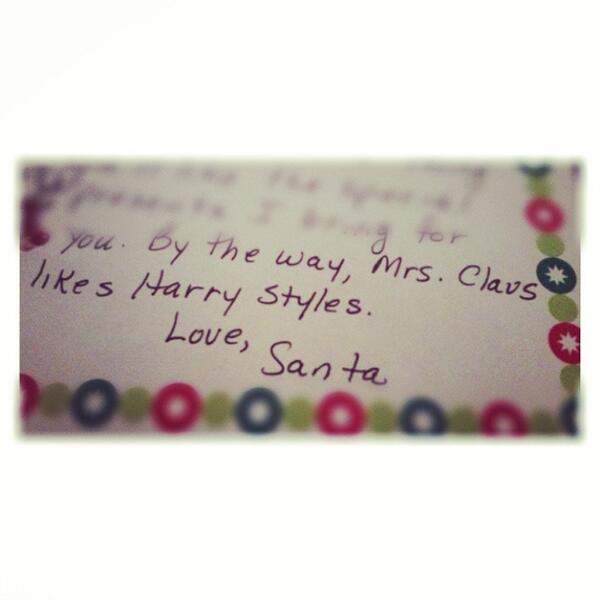 the special
presents I bring for
you. By the way, Mrs. Claus
likes Harry Styles.
Love,
Santa